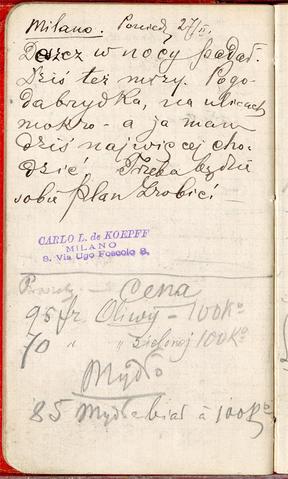 Milano. Poniedz 27/II.
Deszcz w nocy padał.
Dziś też mrzy. Pogo-
da brzydka, na ulicach
mokro – a ja mam
dziś najwięcej cho-
dzić Trzeba będzie
sobie plan zrobić –
CARLO L. de KOEPFF
MILANO
8. Via Ugo Foscolo 8.
Cena
95 fr Oliwy – 100 Ko
70 " " zielonej 100 Ko
Mydło
85 Mydło białe à 100 Ko